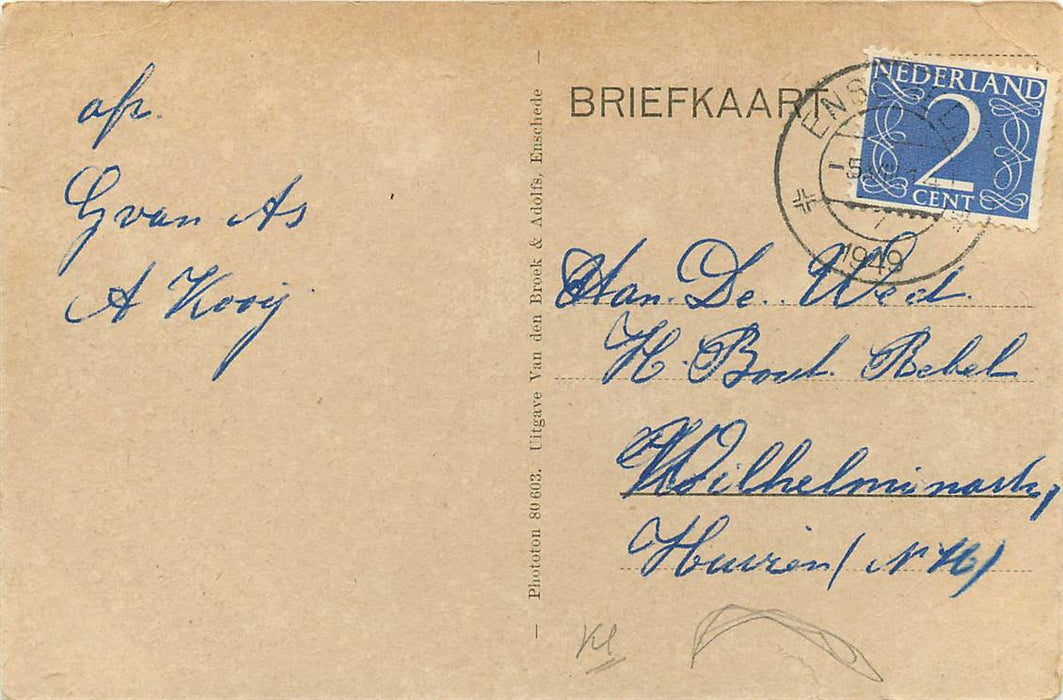 afz.
G van As
A Kooij.
Phototon 80603. Uitgave Van den Broek & Adolfs, Enschede
BRIEFKAART
NEDERLAND
2
CENT
1949
Aan. De. Wed.
H. Bout. Rebel
Wilhelminastr,
Huizen (N H)
Kl